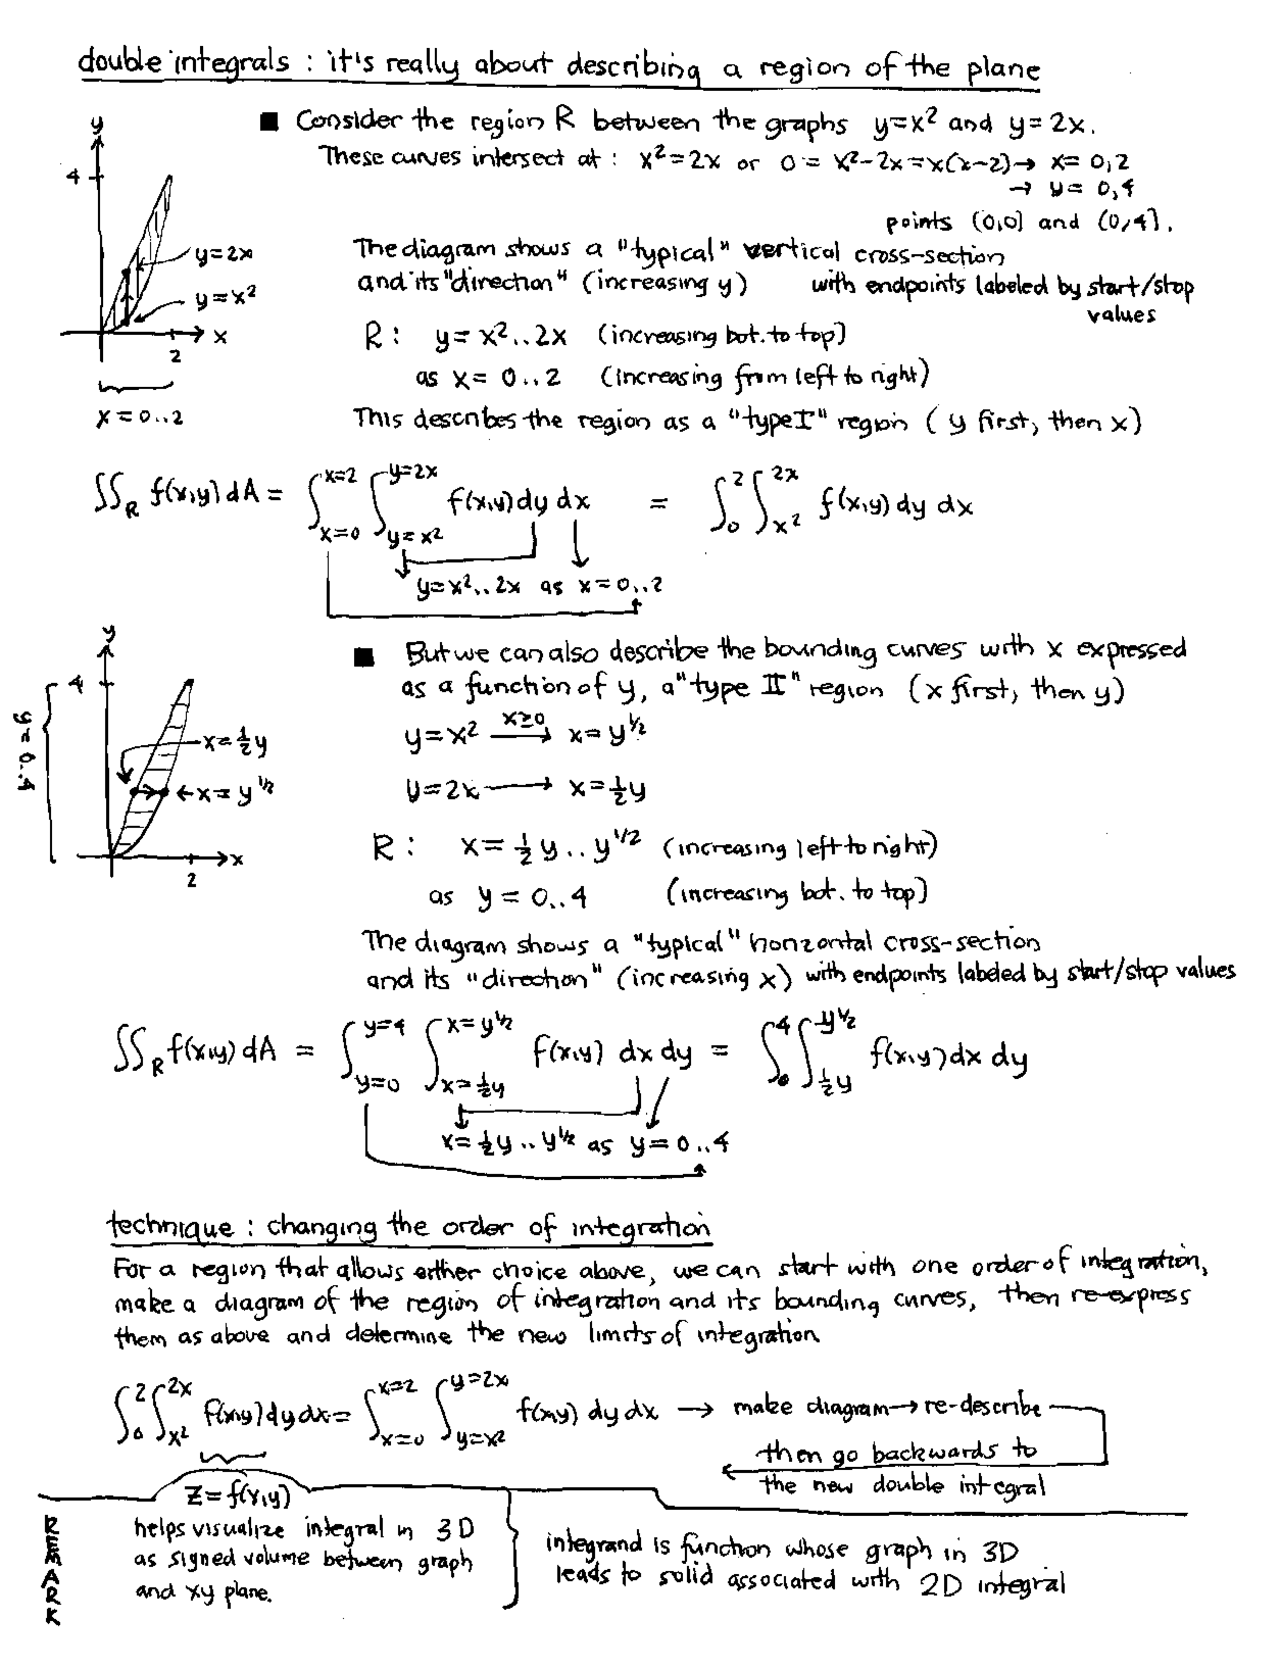 double integrals : it's really about describing a region of the plane
■ Consider the region R between the graphs y=x² and y=2x.
These curves intersect at : x²=2x or 0 = x²-2x=x(x-2)→ x= 0,2
→ y= 0,4
points (0,0) and (0,4).
y
4
y=2x
y=x²
x
2
x=0..2
The diagram shows a "typical" vertical cross-section
and its "direction" (increasing y) with endpoints labeled by start/stop
values
R: y= x²..2x (increasing bot. to top)
as x= 0..2 (increasing from left to right)
This describes the region as a "type I" region ( y first, then x)
∬_R f(x,y) dA = ∫_{x=0}^{x=2} ∫_{y=x²}^{y=2x} f(x,y) dy dx = ∫_0^2 ∫_{x²}^{2x} f(x,y) dy dx
y=x²..2x as x=0..2
■ But we can also describe the bounding curves with x expressed
as a function of y, a "type II" region (x first, then y)
y=x² —x≥0→ x= y^{1/2}
y=2x ⟶ x=½y
y
4
y=0..4
x=½y
←x=y^{1/2}
x
2
R: x= ½y..y^{1/2} (increasing left to right)
as y= 0..4 (increasing bot. to top)
The diagram shows a "typical" horizontal cross-section
and its "direction" (increasing x) with endpoints labeled by start/stop values
∬_R f(x,y) dA = ∫_{y=0}^{y=4} ∫_{x=½y}^{x=y^{1/2}} f(x,y) dx dy = ∫_0^4 ∫_{½y}^{y^{1/2}} f(x,y) dx dy
x=½y..y^{1/2} as y=0..4
technique : changing the order of integration
For a region that allows either choice above, we can start with one order of integration,
make a diagram of the region of integration and its bounding curves, then re-express
them as above and determine the new limits of integration.
∫_0^2 ∫_{x²}^{2x} f(x,y) dy dx = ∫_{x=0}^{x=2} ∫_{y=x²}^{y=2x} f(x,y) dy dx → make diagram → re-describe
then go backwards to
the new double integral
REMARK
z=f(x,y)
helps visualize integral in 3D
as signed volume between graph
and xy plane.
integrand is function whose graph in 3D
leads to solid associated with 2D integral